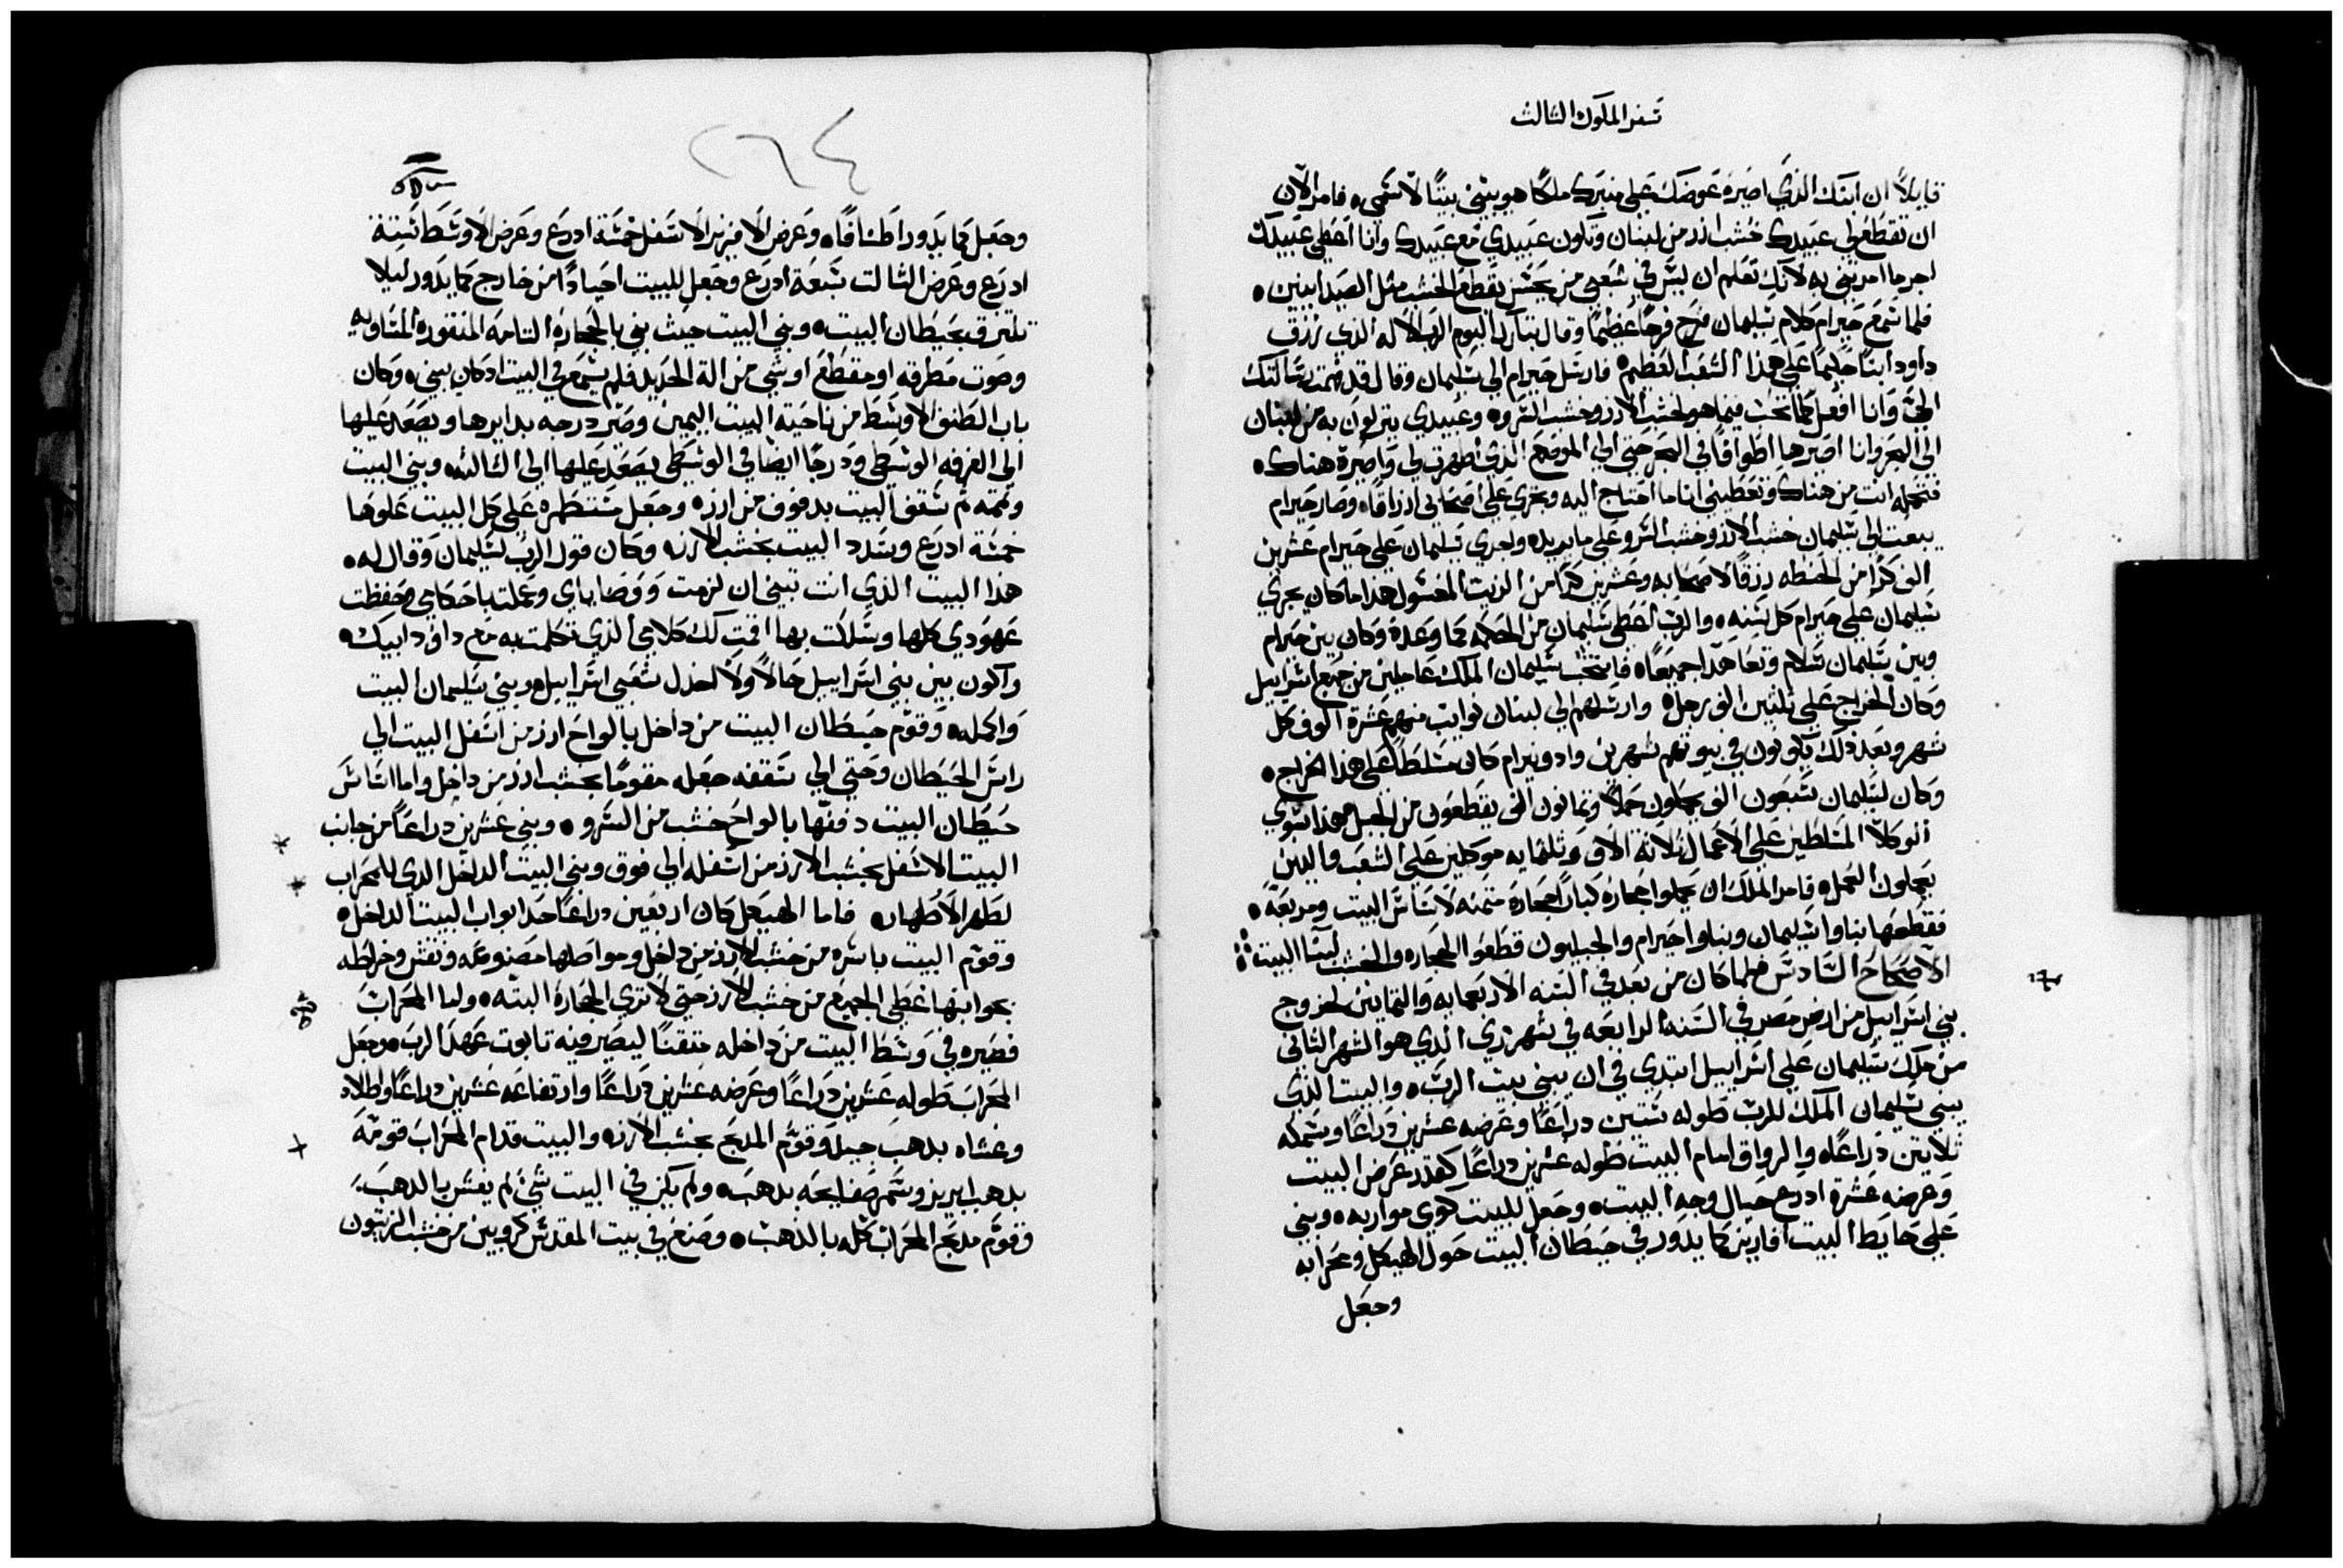 سفر الملوك الثالث
قايلاً ان ابنك الذي اصيره عوضك على منبرك ملكًا هو يبني بيتًا لاسمي ٥ فامر الان
ان تقطع لي عبيدك خشب ارز من لبنان وتكون عبيدي مع عبيدك وانا اعطي عبيدك
اجر ما امرتني به لانك تعلم ان ليس في شعبي من يحسن يقطع الخشب مثل الصيدانيين ٥
فلما سمع حيرام كلام سليمان فرح فرحًا عظيمًا وقال تبارك اليوم الرب الاله الذي رزق
داود ابنًا حليمًا على هذا الشعب العظيم ٥ فارسل حيرام الى سليمان وقال قد فهمت رسالتك
اليّ وانا افعل كلما تحب فيما هو لخشب الارز وخشب السرو ٥ وعبيدي ينزلون به من لبنان
الى البحر وانا اصيرها اطوافًا في البحر حتى الي الموضع الذي اظهرت لي واصيره هناك ٥
فتحمله انت من هناك وتعطيني انا ما احتاج اليه وتجري على اصحابي ارزاقًا ٥ وصار حيرام
يبعت الى سليمان خشب الارز وخشب السرو على ما يريده واجري سليمان على حيرام عشرين
الف كرًا من الحنطه رزقًا لاصحابه وعشرين كرًا من الزيت المغسول هذا ما كان يجري
سليمان على حيرام كل سنه ٥ والرب اعطى سليمان من الحكمه كما وعده وكان بين حيرام
وبين سليمان سلام وتعاهدا جميعًا ٥ فانتخب سليمان الملك عاملين من جميع اسراييل
وكان الخراج على ثلثين الف رجل ٥ وارسلهم الى لبنان نوايب منهم عشرة الوف كل
شهر وبعد ذلك يكونون في بيوتهم شهرين وادونيرام كان مسلطًا على هذا الخراج ٥
وكان لسليمان سبعون الف يحملون حملاً وثمانون الف يقطعون من الجبل هذا سوي
الوكلا المسلطين على الاعمال ثلاثة الاف وثلثمايه موكلين على الشعب والدين
يعملون العمل ٥ فامر الملك ان يحملوا حجاره كبارًا حجاره مثمنه لاساس البيت ومربعه ٥
فقطعها بناوا سليمان وبناوا حيرام والجبليون قطعوا الحجاره والخشب لبنا البيت
الاصحاح السادس فلما كان من بعد في السنه الاربعمايه والثمانين لخروج
بني اسراييل من ارض مصر في السنه الرابعه في شهر زي الذي هو الشهر الثاني
من ملك سليمان على اسراييل ابتدي في ان يبني بيت الرب ٥ والبيت الذي
يبني سليمان الملك للرب طوله ستين دراعًا وعرضه عشرين دراعًا وسمكه
ثلاثين دراعًا ٥ والرواق امام البيت طوله عشرين دراعًا كقدر عرض البيت
وعرضه عشرة ادرع حيال وجه البيت ٥ وجعل للبيت كوي مواربه ٥ وبني
على حايط البيت افاريز كما يدور في حيطان البيت حول الهيكل ومحرابه
وجعل
٢٦٤
وجعل كما يدور اطنافًا ٥ وعرض الافريز الاسفل خمسة ادرع وعرض الاوسط ستة
ادرع وعرض الثالت سبعة ادرع وجعل للبيت احيادًا من خارج كما يدور ليلا
تلتزق بحيطان البيت ٥ وبني البيت حيث بني بالحجارة التامه المنقوره المتساويه
وصوت مطرقه او مقطع او شي من الة الحديد فلم يسمع في البيت اد كان يبني ٥ وكان
باب الطنف الاوسط من ناحية البيت اليمين وصير درجه بدايرها ويصعد عليها
الي الغرفه الوسطي ودرجًا ايضًا في الوسطي يصعد عليها الي الثالثه وبني البيت
وتممه ثم سقف البيت بدفوف من ارز ٥ وجعل منتظره على كل البيت علوها
خمسة ادرع وسدد البيت بخشب الارز ٥ وكان قول الرب لسليمان وقال له ٥
هذا البيت الذي انت تبني ان لزمت ووصاياي وعملت باحكامي وحفظت
عهودي كلها وسلكت بها اقمت لك كلامي الذي تكلمت به مع داود ابيك ٥
واكون بين بني اسراييل حالاً ولا اخذل شعبي اسراييل وبني سليمان البيت
واكمله ٥ وقوم حيطان البيت من داخل بالواح ارز من اسفل البيت الي
راس الحيطان وحتي الي سقفه جعله مقومًا بخشب ارز من داخل واما اساس
حيطان البيت دففها بالواح خشب من السرو ٥ وبني عشرين دراعًا من جانب
البيت الاسفل بخشب الارز من اسفله الي فوق وبني البيت الداخل الذي للمحراب
لطهر الاطهار ٥ فاما الهيكل كان اربعين دراعًا حد ابواب البيت الداخل ٥
وقوم البيت باسره من خشب الارز من داخل ومواصلها مصنوعه ونقش وخراطه
بجوانبها غطي الجميع من خشب الارز حتي لا تري الحجارة البته ٥ واما المحراب
فصيره في وسط البيت من داخله متقنًا ليصير فيه تابوت عهد الرب ٥ وجعل
المحراب طوله عشرين دراعًا وعرضه عشرين دراعًا وارتفاعه عشرين دراعًا وطلاه
وغشاه بدهب جيد وقوم المدبح بخشب الارز ٥ والبيت قدام المحراب قومه
بدهب ابريز وسمر صفايحه بدهب ٥ ولم يكن في البيت شي لم يغش بالدهب
وقوم مدبح المحراب كله بالذهب ٥ وصنع في بيت المقدس كروبين من خشب الزيتون